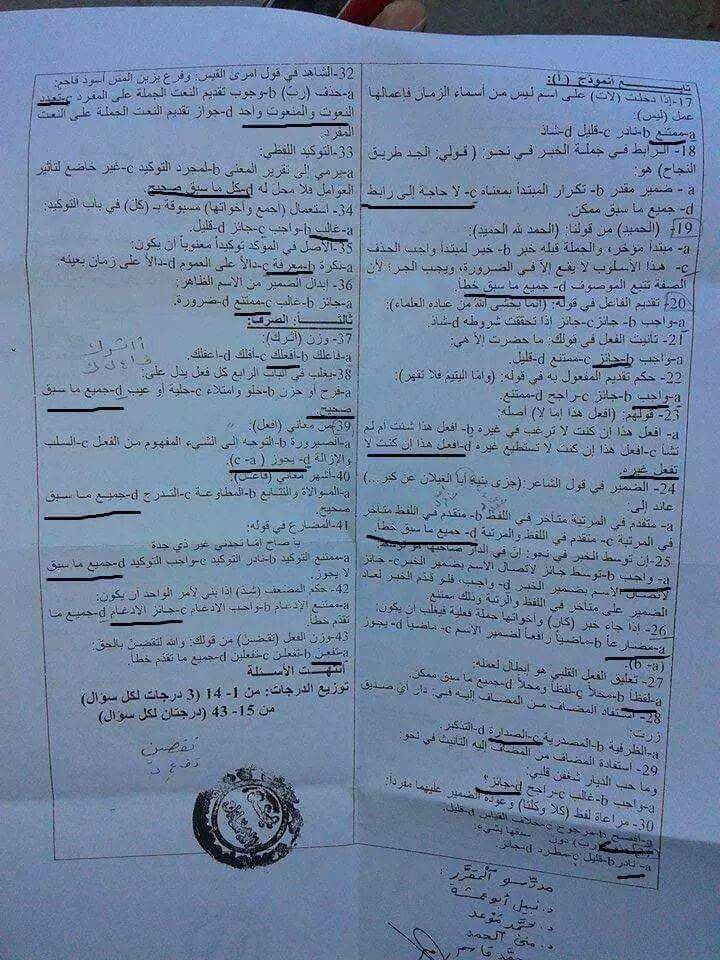 تابع أنموذج (أ):
17-إذا دخلت (لات) على اسم ليس من أسماء الزمان فإعمالها
عمل (ليس):
a-ممتنع b-نادر c-قليل d-شاذ
18- الرابط في جملة الخبر في نحو: ( قولي: الجد طريق
النجاح) هو:
a- ضمير مقدر b- تكرار المبتدأ بمعناه c- لا حاجة إلى رابط
d- جميع ما سبق ممكن.
19- (الحميد) من قولنا: (الحمد لله الحميد):
a- مبتدأ مؤخر، والجملة قبله خبر b- خبر لمبتدأ واجب الحذف
c- هذا الأسلوب لا يقع إلا في الضرورة، ويجب الجر؛ لأن
الصفة تتبع الموصوف d- جميع ما سبق خطأ.
20- تقديم الفاعل في قوله: (إنما يخشى الله من عباده العلماء):
a-واجب b- جائز c-جائز إذا تحققت شروطه d-شاذ.
21- تأنيث الفعل في قولك: ما حضرت إلا هي:
a-واجب b-جائز c-ممتنع d-قليل.
22- حكم تقديم المفعول به في قوله: (وأما اليتيم فلا تقهر):
a-واجب b-جائز c-راجح d-ممتنع.
23- قولهم: (افعل هذا إما لا) أصله:
a- افعل هذا إن كنت لا ترغب في غيره b- افعل هذا شئت أم لم
تشأ c-افعل هذا إن كنت لا تستطيع غيره d-افعل هذا إن كنت لا
تفعل غيره.
24- الضمير في قول الشاعر: (جزى بنوه أبا الغيلان عن كبر...)
عائد إلى:
a- متقدم في المرتبة متأخر في اللفظ b- متقدم في اللفظ متأخر
في المرتبة c- متقدم في اللفظ والمرتبة d- جميع ما سبق خطأ.
25-إن توسط الخبر في نحو: إن في الدار صاحبها هو
a- واجب b-توسط جائز لاتصال الاسم بضمير الخبر c- جائز
لاتصال الاسم بضمير الخبر d- واجب، فلو قدم الخبر لعاد
الضمير على متأخر في اللفظ والرتبة وذلك ممتنع.
26- إذا جاء خبر (كان) وأخواتها جملة فعلية فيغلب أن يكون:
a-مضارعاً b-ماضياً رافعاً لضمير الاسم c- ماضياً d- يجوز
(b -a).
27- تعليق الفعل القلبي هو إبطال لعمله:
a-لفظاً b-محلاً c-لفظاً ومحلاً d-جميع ما سبق ممكن.
28- استفاد المضاف من المضاف إليه في: دار أي صديق
زرت:
a-الظرفية b-المصدرية c-الصدارة d-التذكير.
29- استفادة المضاف من المضاف إليه التأنيث في نحو:
وما حب الديار شغفن قلبي:
a-واجب b-غالب c-راجح d-جائز؟
30- مراعاة لفظ (كلا وكلتا) وعودة الضمير عليهما مفرداً:
a-أفصح b-مرجوح c-خلاف القياس d-قليل.
(رب) دون سبقها بشيء:
a- نادر b-قليل c-مطرد d-جائز.
مدرسو المقرر:
د. نبيل أبو عمشة
د. محمد موعد
د. منى الحمد
قاسم
32-الشاهد في قول امرئ القيس: وفرع يزين المتن أسود فاحم:
a-حذف (رب) b-وجوب تقديم النعت الجملة على المفرد c-تعدد
النعوت والمنعوت واحد d-جواز تقديم النعت الجملة على النعت
المفرد.
33-التوكيد اللفظي:
a-يرمي إلى تقرير المعنى b-لمجرد التوكيد c-غير خاضع لتأثير
العوامل فلا محل له d-كل ما سبق صحيح.
34- استعمال (أجمع وأخواتها) مسبوقة بـ (كل) في باب التوكيد:
a-غالب b-واجب c-جائز d-قليل.
35-الأصل في المؤكد توكيداً معنوياً أن يكون:
a-نكرة b-معرفة c-دالاً على العموم d-دالاً على زمان بعينه.
36- إبدال الضمير من الاسم الظاهر:
a-جائز b-غالب c-ممتنع d-ضرورة.
ثالثاً: الصرف:
37- وزن (أترك):
a-فاعلك b-أفعلك c-أفلك d-اعفلك.
38-يغلب في الباب الرابع كل فعل يدل على:
a-فرح أو حزن b-خلو وامتلاء c-حلية أو عيب d-جميع ما سبق
صحيح.
39-من معاني (افعل):
a-الصيرورة b-التوجه إلى الشيء المفهوم من الفعل c-السلب
والإزالة d-يجوز (c -a).
40-أشهر معاني (فاعل):
a-الموالاة والتتابع b-المطاوعة c-التدرج d-جميع ما سبق
صحيح.
41-المضارع في قوله:
يا صاح إما تجدني غير ذي جدة
a-ممتنع التوكيد b-نادر التوكيد c-واجب التوكيد d-جميع ما سبق
لا يجوز.
42- حكم المضعف (شد) إذا بني لأمر الواحد أن يكون:
a-ممتنع الإدغام b-واجب الادغام c-جائز الإدغام d-جميع ما
تقدم خطأ.
43-وزن الفعل (تقضين) من قولك: والله لتقضين بالحق:
a-تفعن b-تفعلن c-تفعلين d-جميع ما تقدم خطأ.
انتهت الأسئلة
توزيع الدرجات: من 1- 14 (3 درجات لكل سؤال)
من 15- 43 (درجتان لكل سؤال)
تقضين